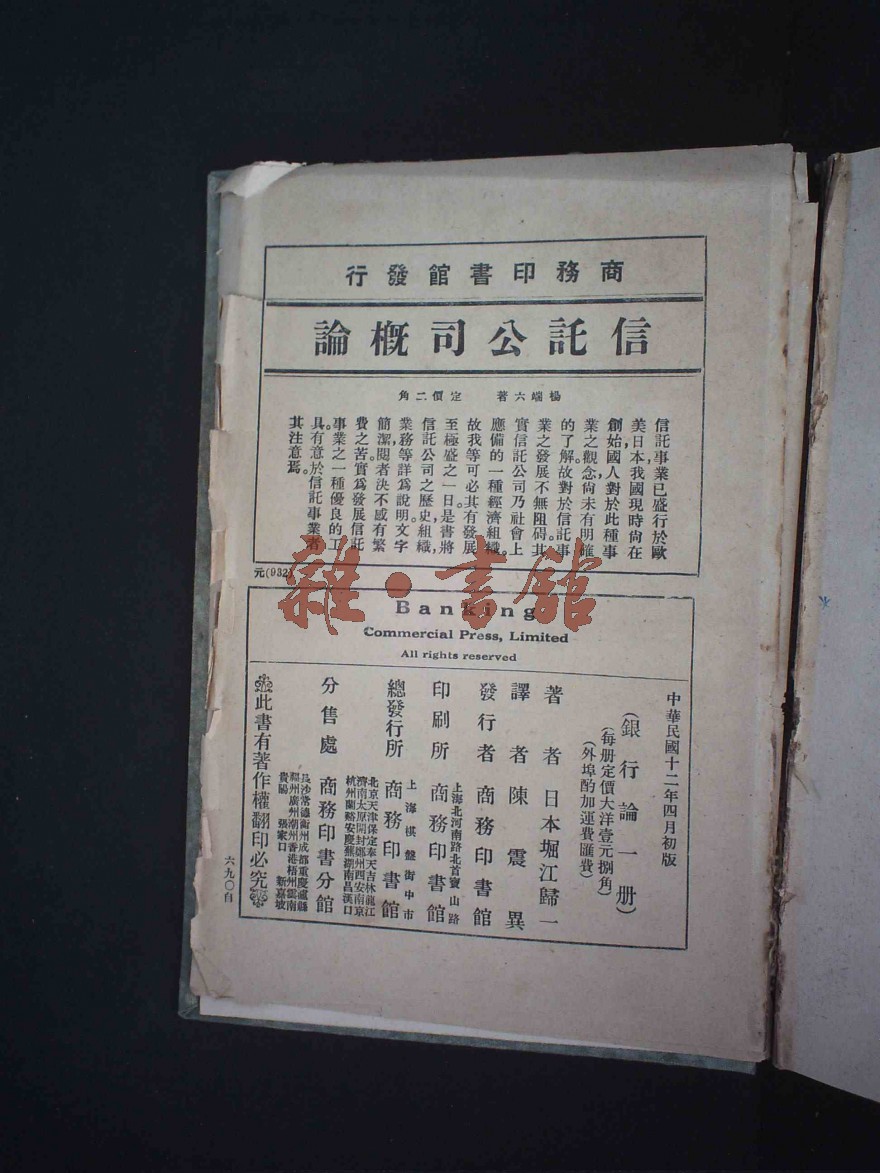 商務印書館發行
信託公司概論
楊端六著 定價二角
信託事業已盛行於歐
美,日本我國現時尙在
創始國人對於此種事
業之觀念尙未有明確
的了解。故對於信託事
業之發展不無阻碍。其
實信託公司乃社會上
應備的一種經濟組織。
故我等可必其有發展
至極盛之一日。是書將
信託公司之歷史,組織,
業務等詳爲說明。文字
簡潔,閱者決不感有繁
費之苦。實爲發展信託
事業之一種優良的工
具。有意於信託事業者
其注意焉。
元(932)
雜·書館
Banking
Commercial Press, Limited
All rights reserved
中華民國十二年四月初版
(銀行論一册)
(每册定價大洋壹元捌角)
(外埠酌加運費匯費)
著者 日本堀江歸一
譯者 陳震異
發行者 商務印書館
上海北河南路北首寶山路
印刷所 商務印書館
上海棋盤街中市
總發行所 商務印書館
北京天津保定奉天吉林龍江
濟南太原開封鄭州西安南京
杭州蘭谿安慶蕪湖南昌漢口
分售處 商務印書分館
長沙常德衡州成都重慶瀘縣
福州廣州潮州香港梧州雲南
貴陽 張家口 新嘉坡
此書有著作權翻印必究
六九〇自